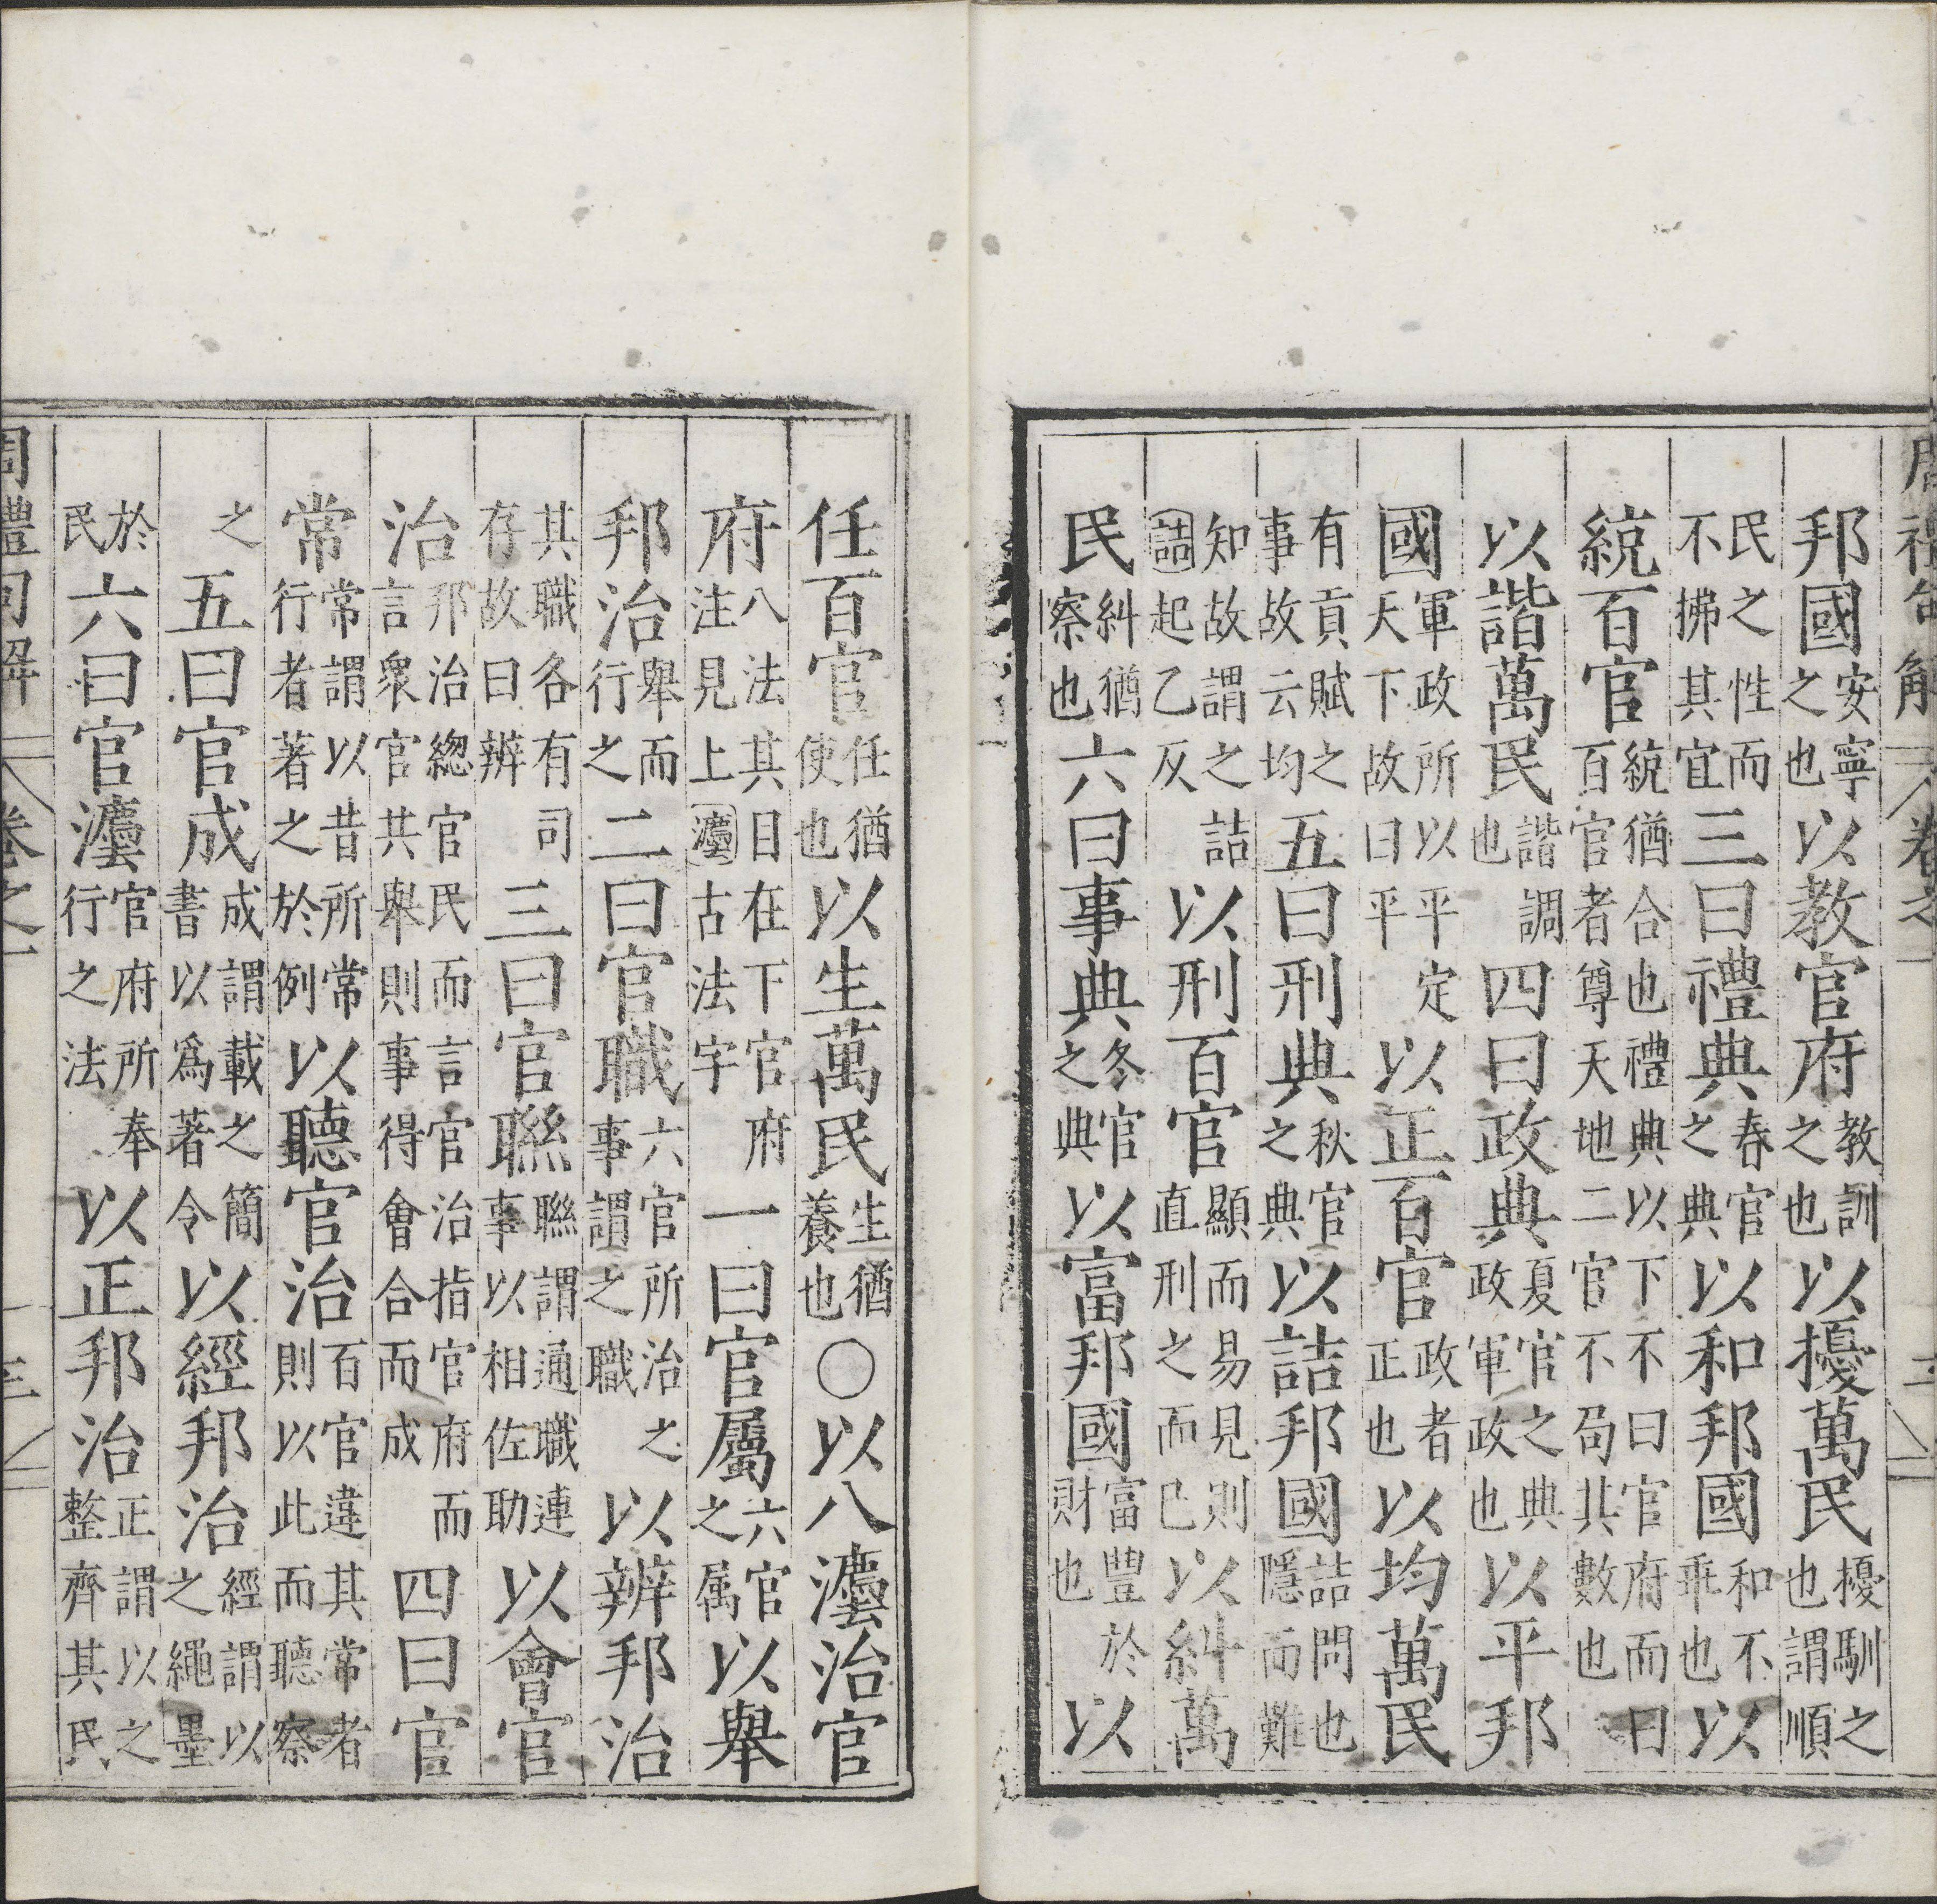 周禮句解 卷之一
邦國安寧之也以教官府教訓之也以擾萬民擾馴之也謂順
民之性而不拂其宜三曰禮典春官之典以和邦國和不乖也以
統百官統猶合也禮典以下不曰官府而曰百官者尊天地二官不苟其數也
以諧萬民諧調也四曰政典夏官之典政軍政也以平邦
國軍政所以平定天下故曰平以正百官政者正也以均萬民
有貢賦之事故云均五曰刑典秋官之典以詰邦國詰問也隱而難
知故謂之詰詰起乙反以刑百官顯而易見則直刑之而已以糾萬
民糾猶察也六曰事典冬官之典以富邦國富豐於財也以
任百官任猶使也以生萬民生猶養也○以八灋治官
府八法其目在下官府注見上灋古法字一曰官屬六官之属以舉
邦治舉而行之二曰官職六官所治之事謂之職以辨邦治
其職各有司存故曰辨三曰官聯聯謂通職連事以相佐助以會官
治邦治緫官民而言官治指官府而言衆官共舉則事得會合而成四曰官
常常謂以昔所常行者著之於例以聽官治百官違其常者則以此而聽察
之五曰官成成謂載之簡書以爲著令以經邦治經謂以之繩墨
於民六曰官灋官府所奉行之法以正邦治正謂以之整齊其民
周禮句解 卷之一 三